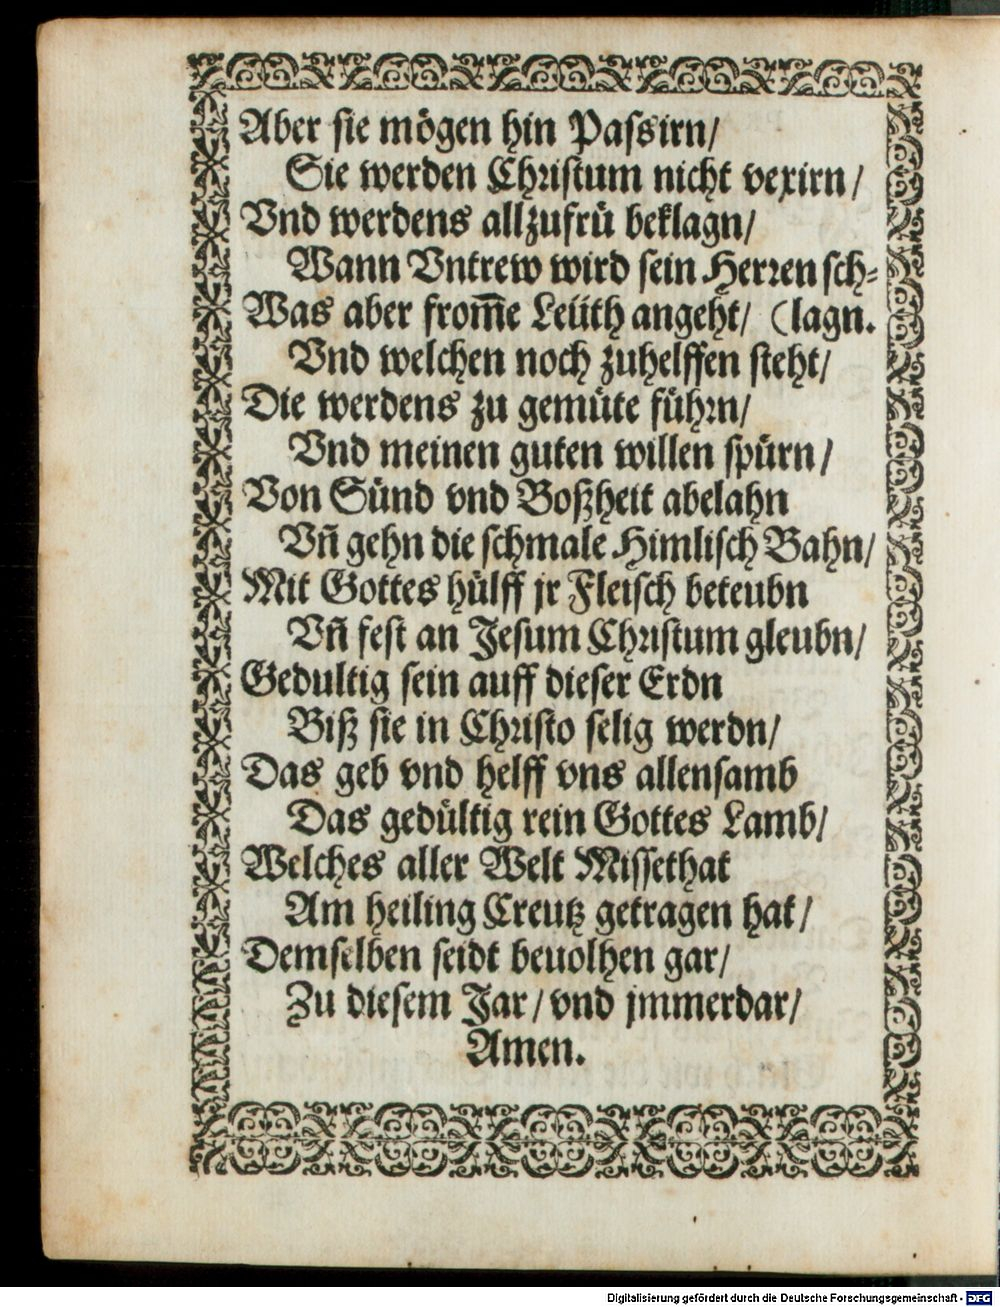 Aber sie mögen hin Passirn/
Sie werden Christum nicht vexirn/
Vnd werdens allzufrü beklagn/
Wann Vntrew wird sein Herren sch⸗
Was aber from̅e Leüth angeht/ (lagn.
Vnd welchen noch zuhelffen steht/
Die werdens zu gemüte führn/
Vnd meinen guten willen spürn/
Von Sünd vnd Boßheit abelahn
Vñ gehn die schmale Himlisch Bahn/
Mit Gottes hülff jr Fleisch beteubn
Vñ fest an Jesum Christum gleubn/
Gedultig sein auff dieser Erdn
Biß sie in Christo selig werdn/
Das geb vnd helff vns allensamb
Das gedültig rein Gottes Lamb/
Welches aller Welt Missethat
Am heiling Creutz getragen hat/
Demselben seidt beuolhen gar/
Zu diesem Jar/ vnd jmmerdar/
Amen.
Digitalisierung gefördert durch die Deutsche Forschungsgemeinschaft - DFG